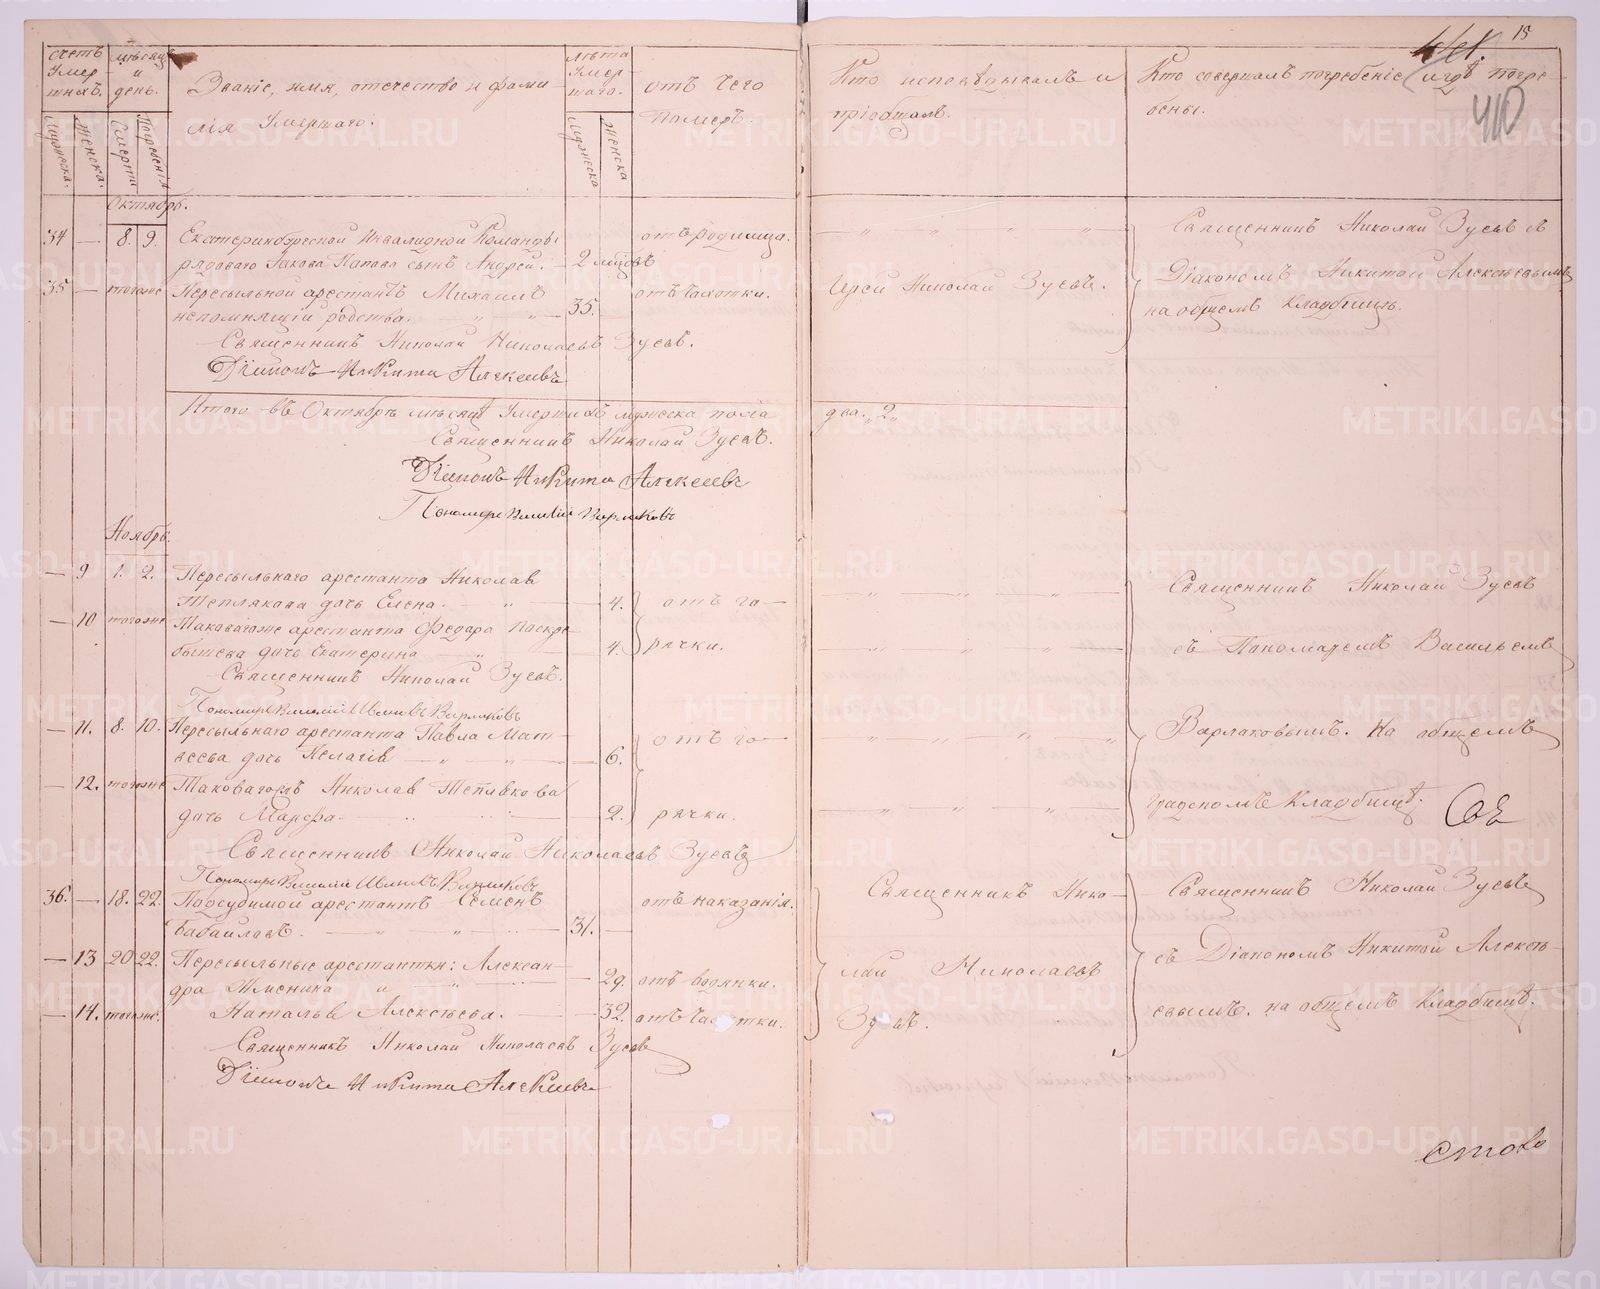 15
410
счетъ умер- шихъ.
мѣсяцъ и день.
Званіе, имя, отечество и фами-
лія умершаго.
лѣта умер- шаго.
отъ чего
померъ.
Кто исповѣдывалъ и
пріобщалъ.
Кто совершалъ погребеніе и гдѣ погре-
бены.
Мужеска. Женска. Смерти Погребенія Мужеска Женска
Октябрь.
34 — 8. 9. Екатеринбургской Инвалидной Команды отъ родимца.
рядоваго Іакова Попова сынъ Андрей. — 2 мѣсяцъ
Священникъ Николай Зуевъ съ
35 — тогоже Пересыльной арестантъ Михаилъ отъ чахотки. Іерей Николай Зуевъ.
непомнящій родства. 35.
Діакономъ Никитой Алексѣевымъ
на общемъ кладбищѣ.
Священникъ Николай Николаевъ Зуевъ.
Діаконъ Никита Алексеевъ
Итого въ Октябрѣ мѣсяцѣ умершихъ мужеска пола два „2„
Священникъ Николай Зуевъ.
Діаконъ Никита Алексеевъ
Пономарь Василій Варлаковъ
Ноябрь.
— 9 1. 2. Пересыльнаго арестанта Николая
Теплякова дочь Елена. 4. отъ го-
Священникъ Николай Зуевъ
— 10 тогоже Таковагоже арестанта Федора Поскре-
бышева дочь Екатерина 4. рячки.
съ Пономаремъ Васильемъ
Священникъ Николай Зуевъ.
Пономарь Василій Ивановъ Варлаковъ
— 11. 8. 10. Пересыльнаго арестанта Павла Мат- отъ го-
веева дочь Пелагія 6.
Варлаковымъ. На общемъ
— 12. тогоже Таковагожъ Николая Теплякова
дочь Марфа. 2. рячки.
градскомъ кладбищѣ.
Священникъ Николай Николаевъ Зуевъ
Пономарь Василій Ивановъ Варлаковъ
36. — 18. 22. Подсудимой арестантъ Семенъ отъ наказанія. Священникъ Нико-
31.
Священникъ Николай Зуевъ
— 13 20 22. Пересыльные арестантки: Алексан-
и 29. отъ водянки. лай Николаевъ
съ Діакономъ Никитой Алексѣ-
— 14. тогоже. Наталья Алексѣева. 32. отъ чахотки. Зуевъ.
евымъ. на общемъ кладбищѣ.
Священникъ Николай Николаевъ Зуевъ
Діаконъ Никита Алексеевъ
METRIKI.GASO-URAL.RU